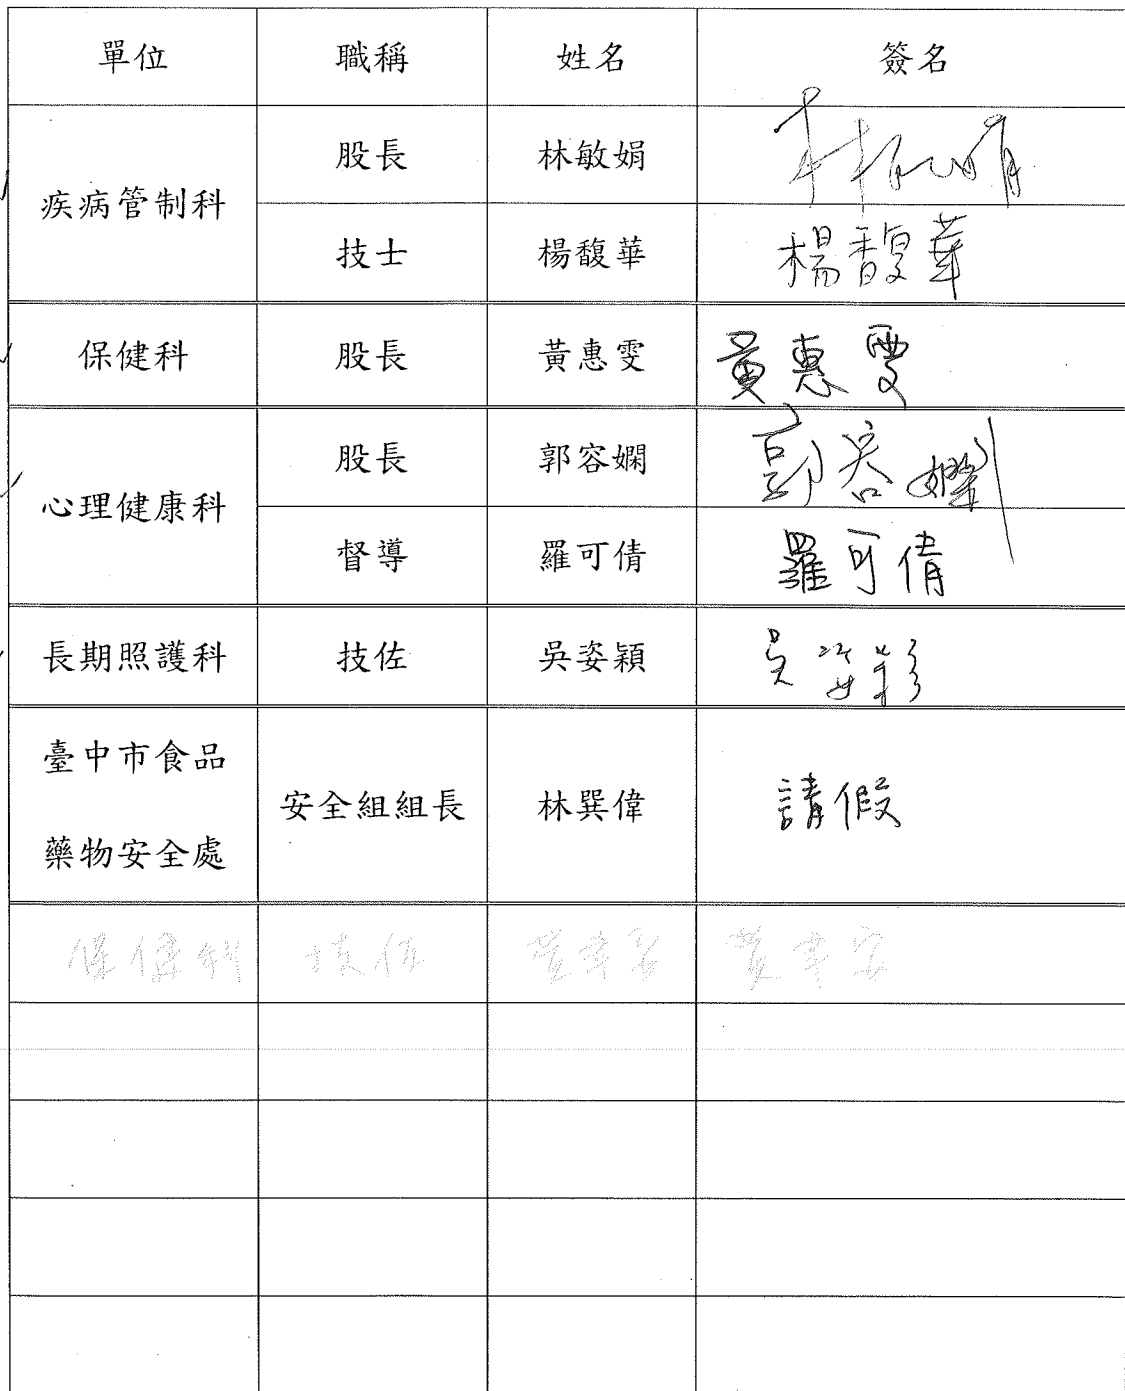 單位 職稱 姓名 簽名
疾病管制科 股長 林敏娟 林敏娟
技士 楊馥華 楊馥華
保健科 股長 黃惠雯 黃惠雯
心理健康科 股長 郭容嫻 郭容嫻
督導 羅可倩 羅可倩
長期照護科 技佐 吳姿穎 吳姿穎
臺中市食品
藥物安全處 安全組組長 林巽偉 請假
保健科 技佐